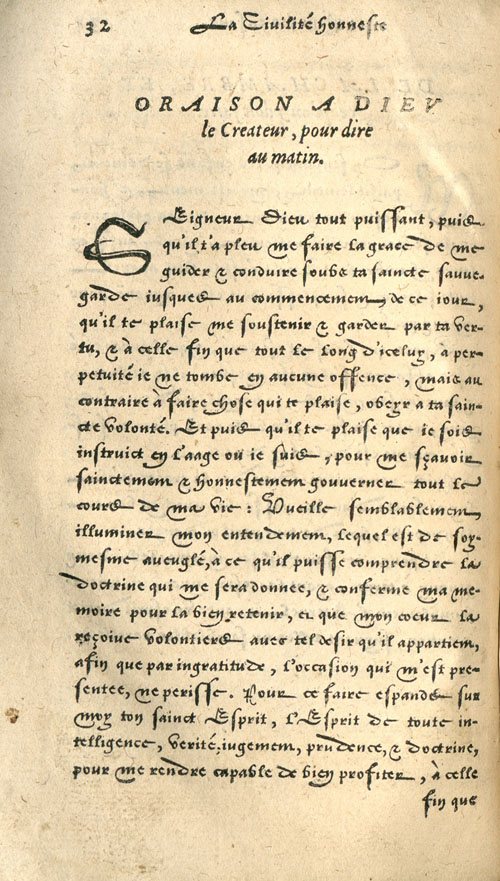 32 La Civilité honneste
ORAISON A DIEV
le Createur, pour dire
au matin.
SEigneur Dieu tout puissant, puis
qu'il t'a pleu me faire la grace de me
guider & conduire soubs ta saincte sauue-
garde iusques au commencement de ce iour,
qu'il te plaise me soustenir & garder par ta ver-
tu, & à celle fin que tout le long d'iceluy, à per-
petuité ie ne tombe en aucune offence, mais au
contraire à faire chose qui te plaise, obeyr a ta sain-
cte volonté. Et puis qu'il te plaise que ie sois
instruict en l'aage ou ie suis, pour me sçauoir
sainctement & honnestement gouuerner tout le
cours de ma vie: Vueille semblablement
illuminer mon entendement, lequel est de soy-
mesme aueuglé, à ce qu'il puisse comprendre la
doctrine qui me sera donnee, & conferme ma me-
moire pour la bien retenir, et que mon coeur la
reçoiue volontiers auec tel desir qu'il appartient,
afin que par ingratitude, l'occasion qui m'est pre-
sentee, ne perisse. Pour ce faire espands sur
moy ton sainct Esprit, l'Esprit de toute in-
telligence, verité, iugement, prudence, & doctrine,
pour me rendre capable de bien profiter, à celle
fin que